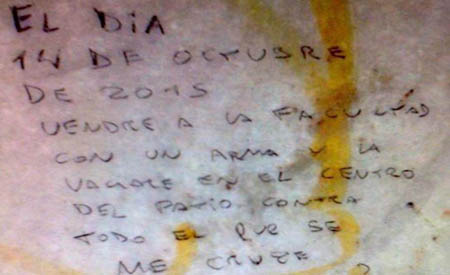 EL DIA
14 DE OCTUBRE
DE 2015
VENDRE A LA FACULTAD
CON UN ARMA Y LA
VACIARE EN EL CENTRO
DEL PATIO CONTRA
TODO EL QUE SE
ME CRUZE